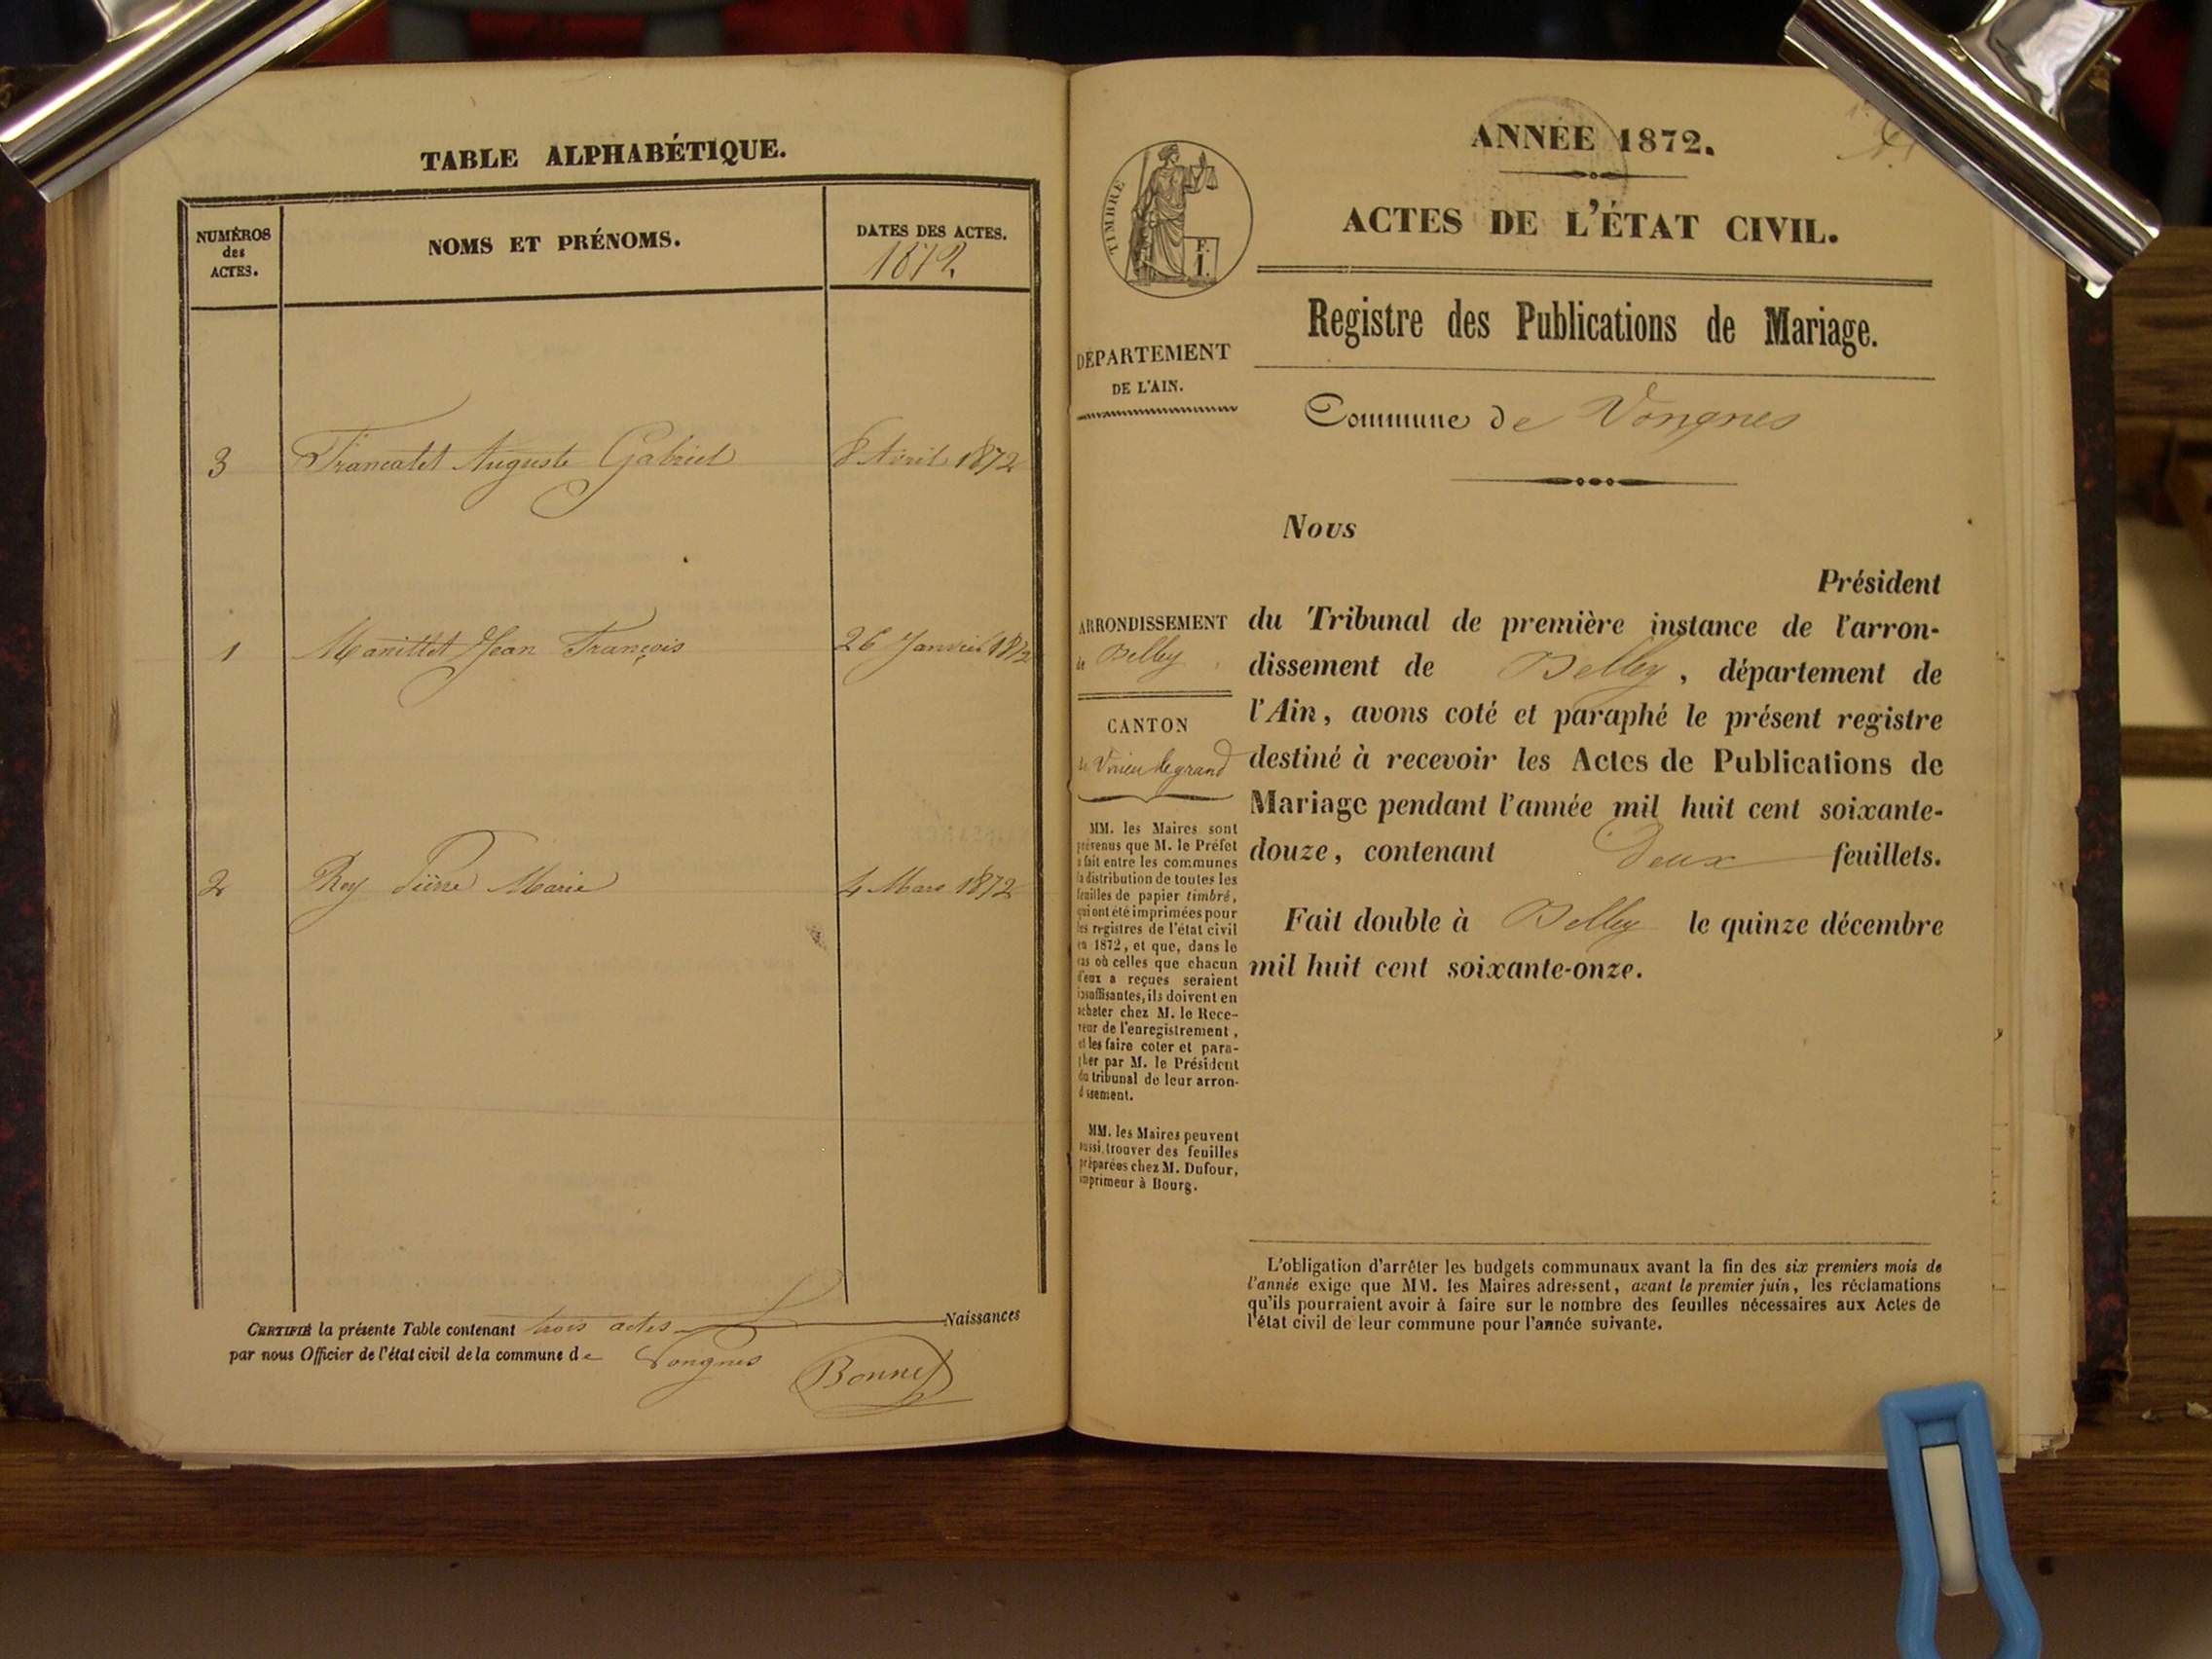 TABLE ALPHABÉTIQUE.
NUMÉROS
des
ACTES.
NOMS ET PRÉNOMS.
DATES DES ACTES.
1872.
3 Francatet Auguste Gabriel 8 Avril 1872
1 Jean François 26 Janvier 1872
2 Rey Pierre Marie 4 Mars 1872
CERTIFIÉ la présente Table contenant trois actes Naissances
par nous Officier de l'état civil de la commune de Vongnes
Bonnet
ANNÉE 1872.
ACTES DE L'ÉTAT CIVIL.
TIMBRE
F.
1.
Registre des Publications de Mariage.
DÉPARTEMENT
DE L'AIN.
Commune de Vongnes
Nous
Président
ARRONDISSEMENT
de Belley
du Tribunal de première instance de l'arron-
dissement de Belley, département de
l'Ain, avons coté et paraphé le présent registre
destiné à recevoir les Actes de Publications de
Mariage pendant l'année mil huit cent soixante-
douze, contenant Deux feuillets.
Fait double à Belley le quinze décembre
mil huit cent soixante-onze.
CANTON
de Virieu legrand
MM. les Maires sont
prévenus que M. le Préfet
a fait entre les communes
la distribution de toutes les
feuilles de papier timbré,
qui ont été imprimées pour
les registres de l'état civil
en 1872, et que, dans le
cas où celles que chacun
d'eux a reçues seraient
insuffisantes, ils doivent en
acheter chez M. le Rece-
veur de l'enregistrement,
et les faire coter et para-
pher par M. le Président
du tribunal de leur arron-
dissement.
MM. les Maires peuvent
aussi trouver des feuilles
préparées chez M. Dufour,
imprimeur à Bourg.
L'obligation d'arrêter les budgets communaux avant la fin des six premiers mois de
l'année exige que MM. les Maires adressent, avant le premier juin, les réclamations
qu'ils pourraient avoir à faire sur le nombre des feuilles nécessaires aux Actes de
l'état civil de leur commune pour l'année suivante.